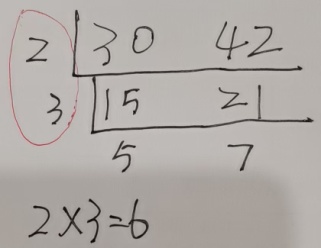 2 30 42
3 15 21
5 7
2×3=6